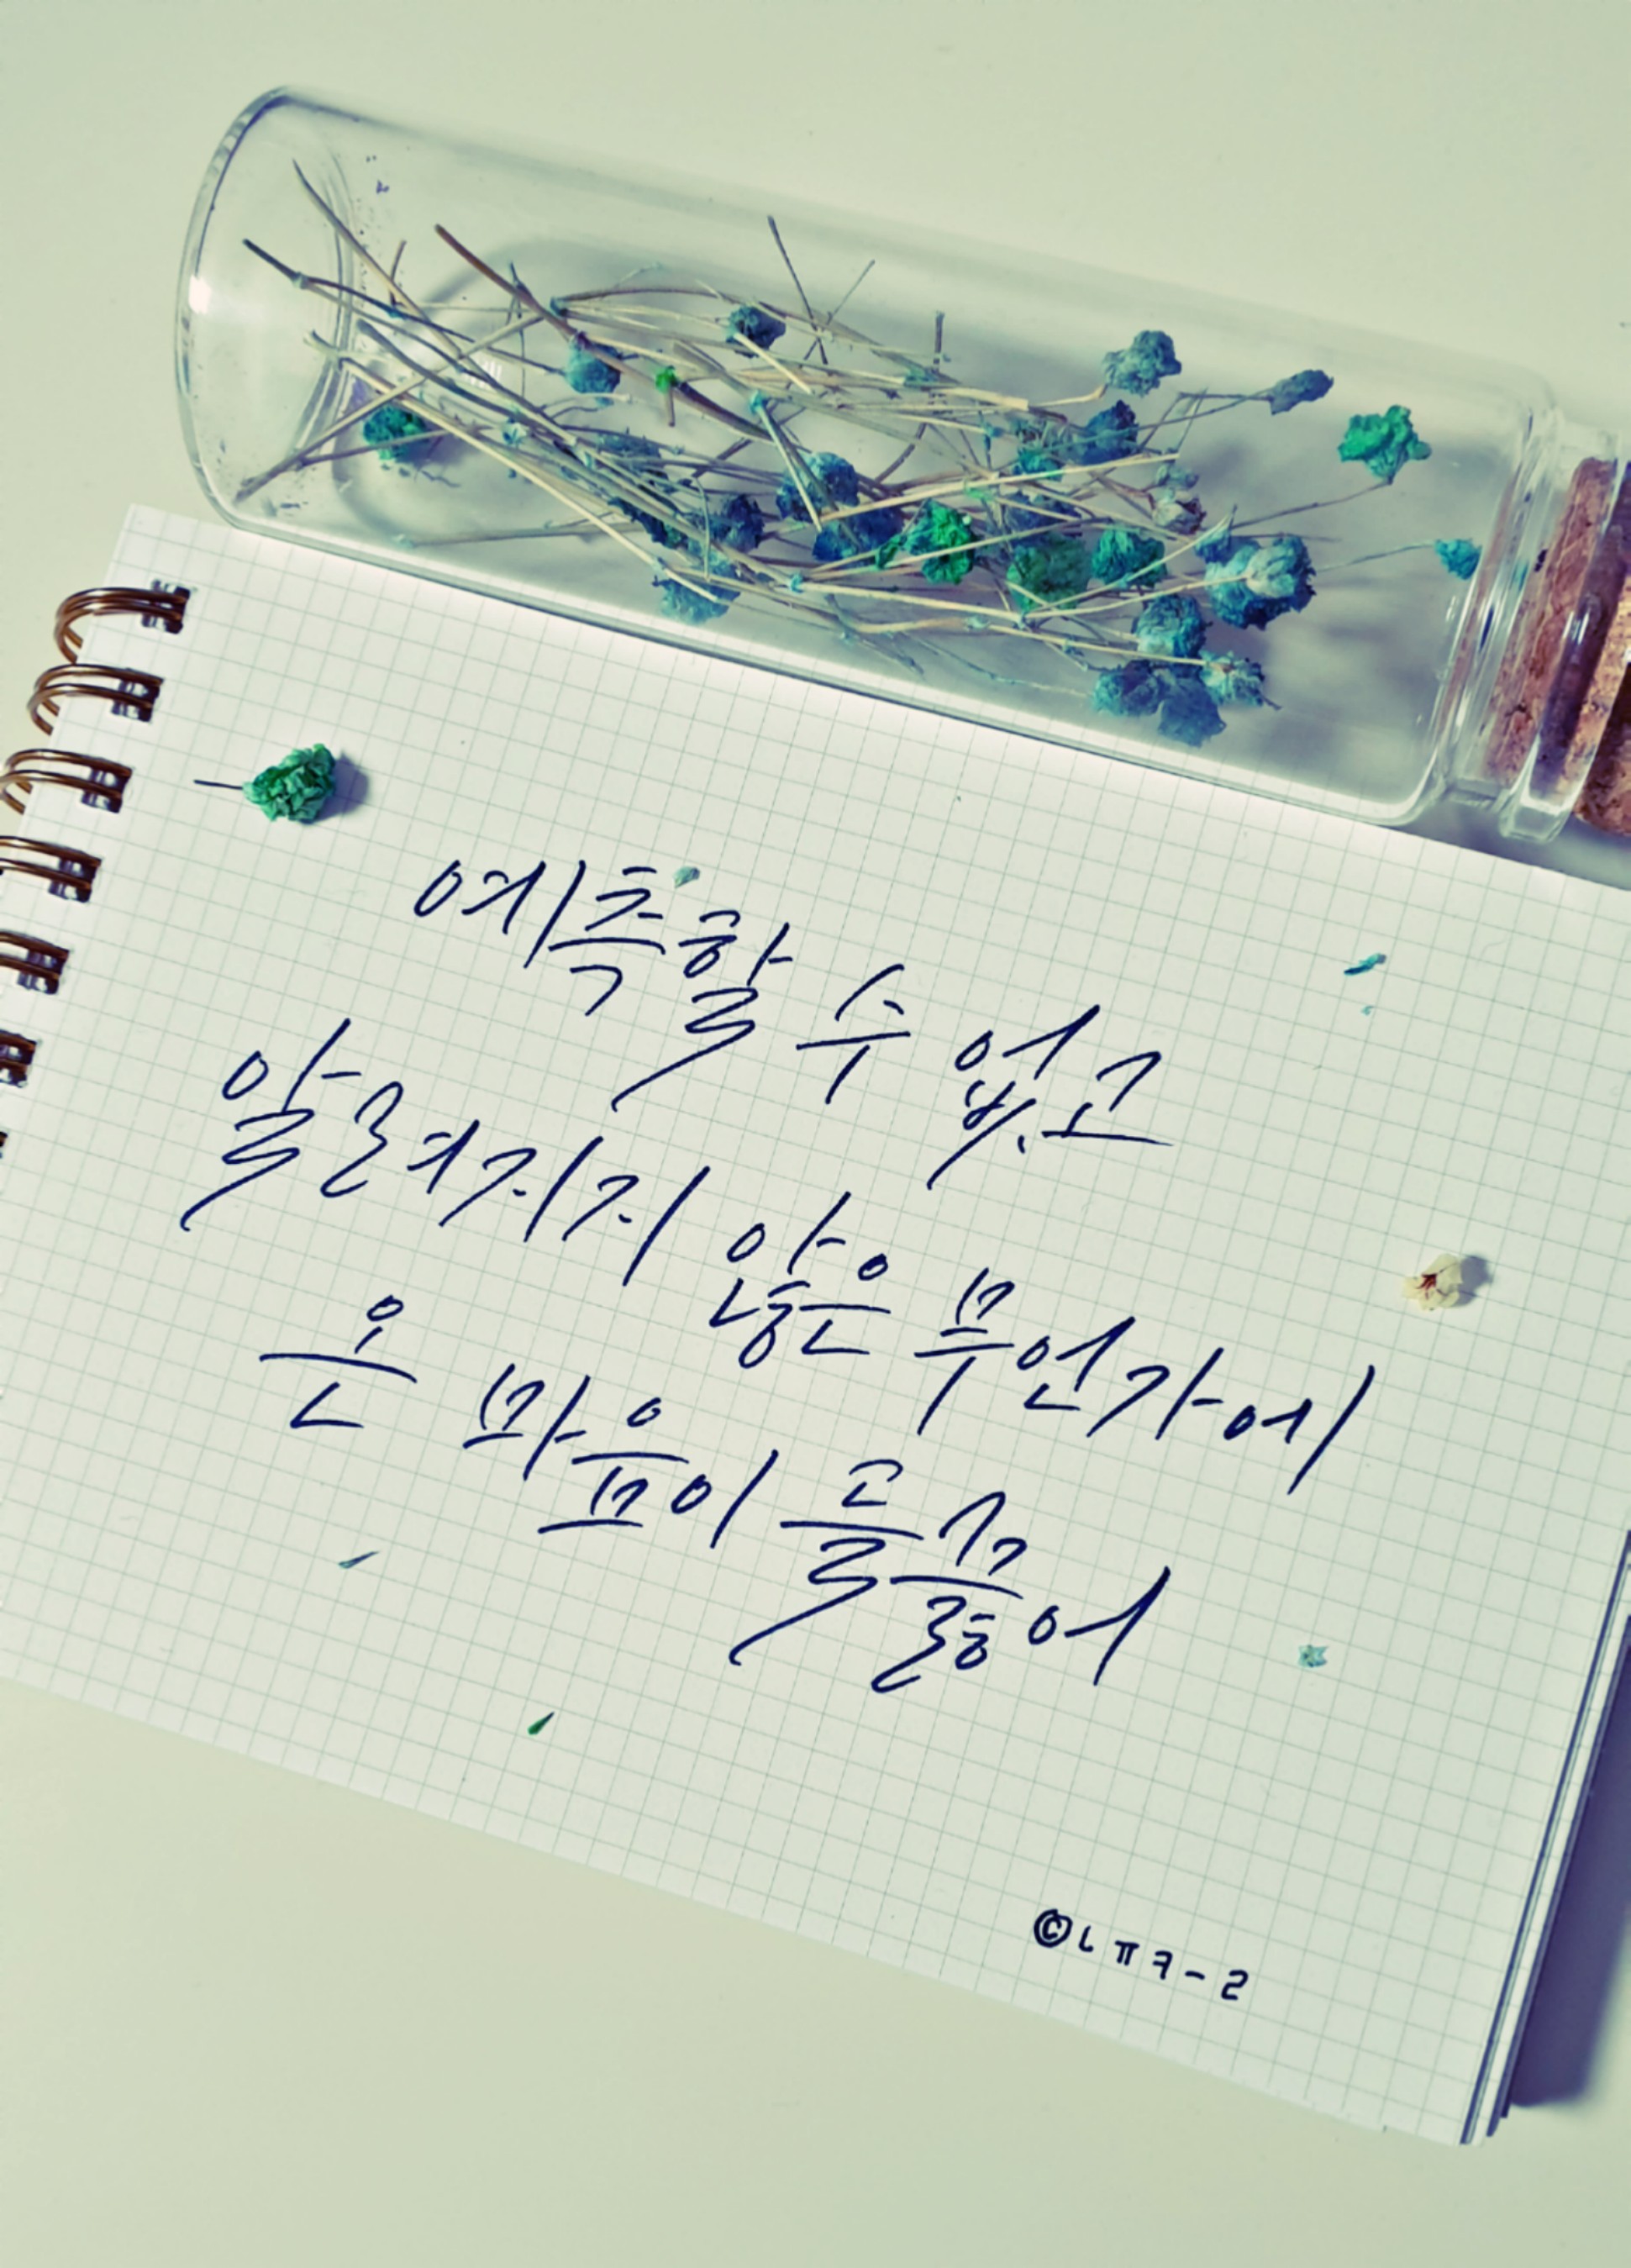 예측할 수 없고
알려지지 않은 무언가에
온 마음이 들끓어
©ㄴㅠㅋㅡㄹ